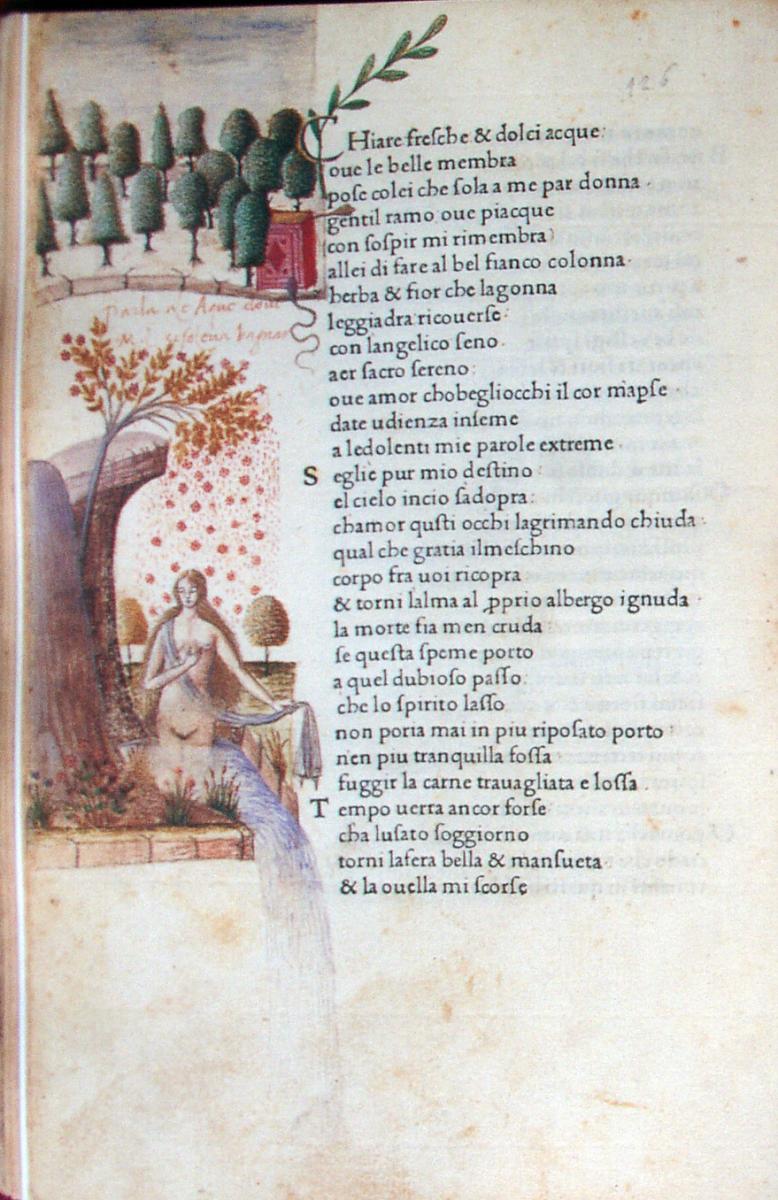 126
CHiare fresche & dolci acque:
oue le belle membra
pose colei che sola a me par donna
gentil ramo oue piacque
con sospir mi rimembra)
allei di fare al bel fianco colonna·
herba & fior che lagonna
leggiadra ricouerse·
con langelico seno·
aer sacro sereno:
oue amor chobegliocchi il cor mapse
date udienza inseme
a ledolenti mie parole extreme
Seglie pur mio destino
el cielo incio sadopra:
chamor qusti occhi lagrimando chiuda·
qual che gratia ilmeschino
corpo fra uoi ricopra
& torni lalma al pprio albergo ignuda·
la morte fia men cruda
se questa speme porto
a quel dubioso passo.
che lo spirito lasso
non poria mai in piu riposato porto
nen piu tranquilla fossa
fuggir la carne trauagliata e lossa·
Tempo uerra ancor forse
cha lusato soggiorno
torni lafera bella & mansueta
& la ouella mi scorse